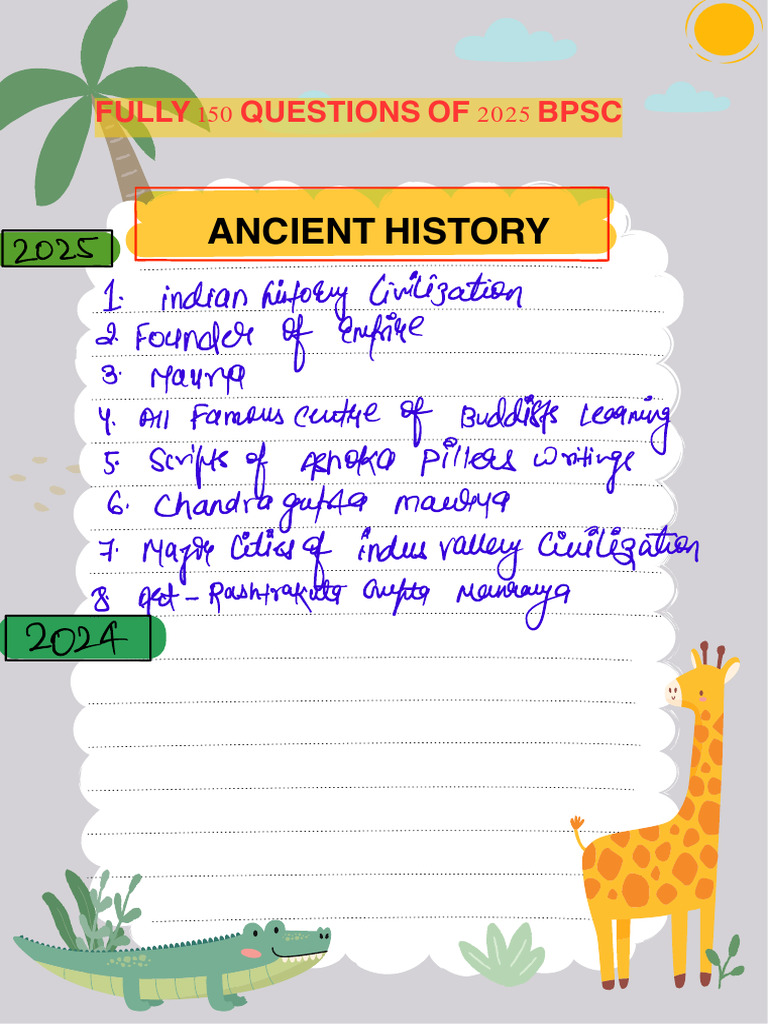 FULLY 150 QUESTIONS OF 2025 BPSC
ANCIENT HISTORY
2025
1. indian history Civilization
2. Founder of empire
3. Maurya
4. All Famous centre of Buddists Learning
5. Scripts of Ashoka Pillers writings
6. Chandra gupta maurya
7. Major Cities of indus valley Civilization
8. Rashtrakuta Gupta
2024